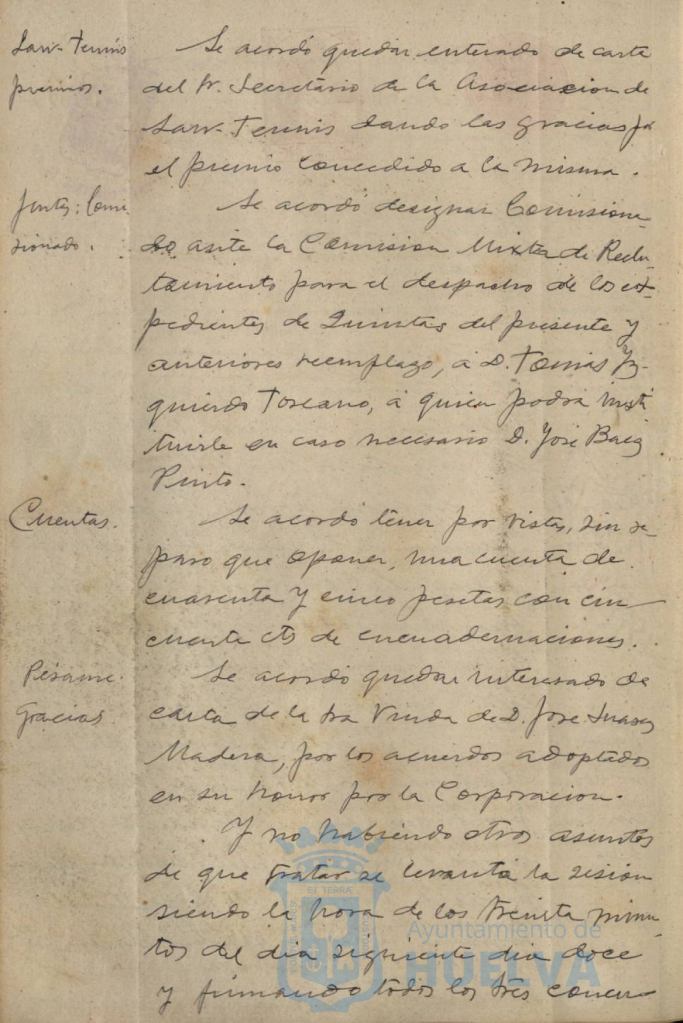 Lawn-Tennis
premios.
Se acordó quedar enterado de carta
del Sr. Secretario de la Asociacion de
Lawn-Tennis dando las gracias por
el premio concedido a la misma.
Juntas: Comi
sionado.
Se acordó designar Comisiona-
do ante la Comision Mixta de Reclu-
tamiento para el despacho de los ex-
pedientes de Quintas del presente y
anteriores reemplazo, á D. Tomás Yz-
quierdo Toscano, á quien podrá susti
tuirle en caso necesario D. José Baez
Pinto.
Cuentas.
Se acordó tener por vistas, sin re-
paro que oponer, una cuenta de
cuarenta y cinco pesetas con cin-
cuenta cts de encuadernaciones.
Pésame.
Gracias
Se acordó quedar interesado de
carta de la Sra Viuda de D. José Suarez
Madera, por los acuerdos adoptados
en su honor por la Corporacion.
Y no habiendo otros asuntos
de que tratar se levantó la sesión
siendo la hora de los treinta minu-
tos del dia siguiente dia doce
y firmando todos los tres concu-
Ayuntamiento de
HUELVA